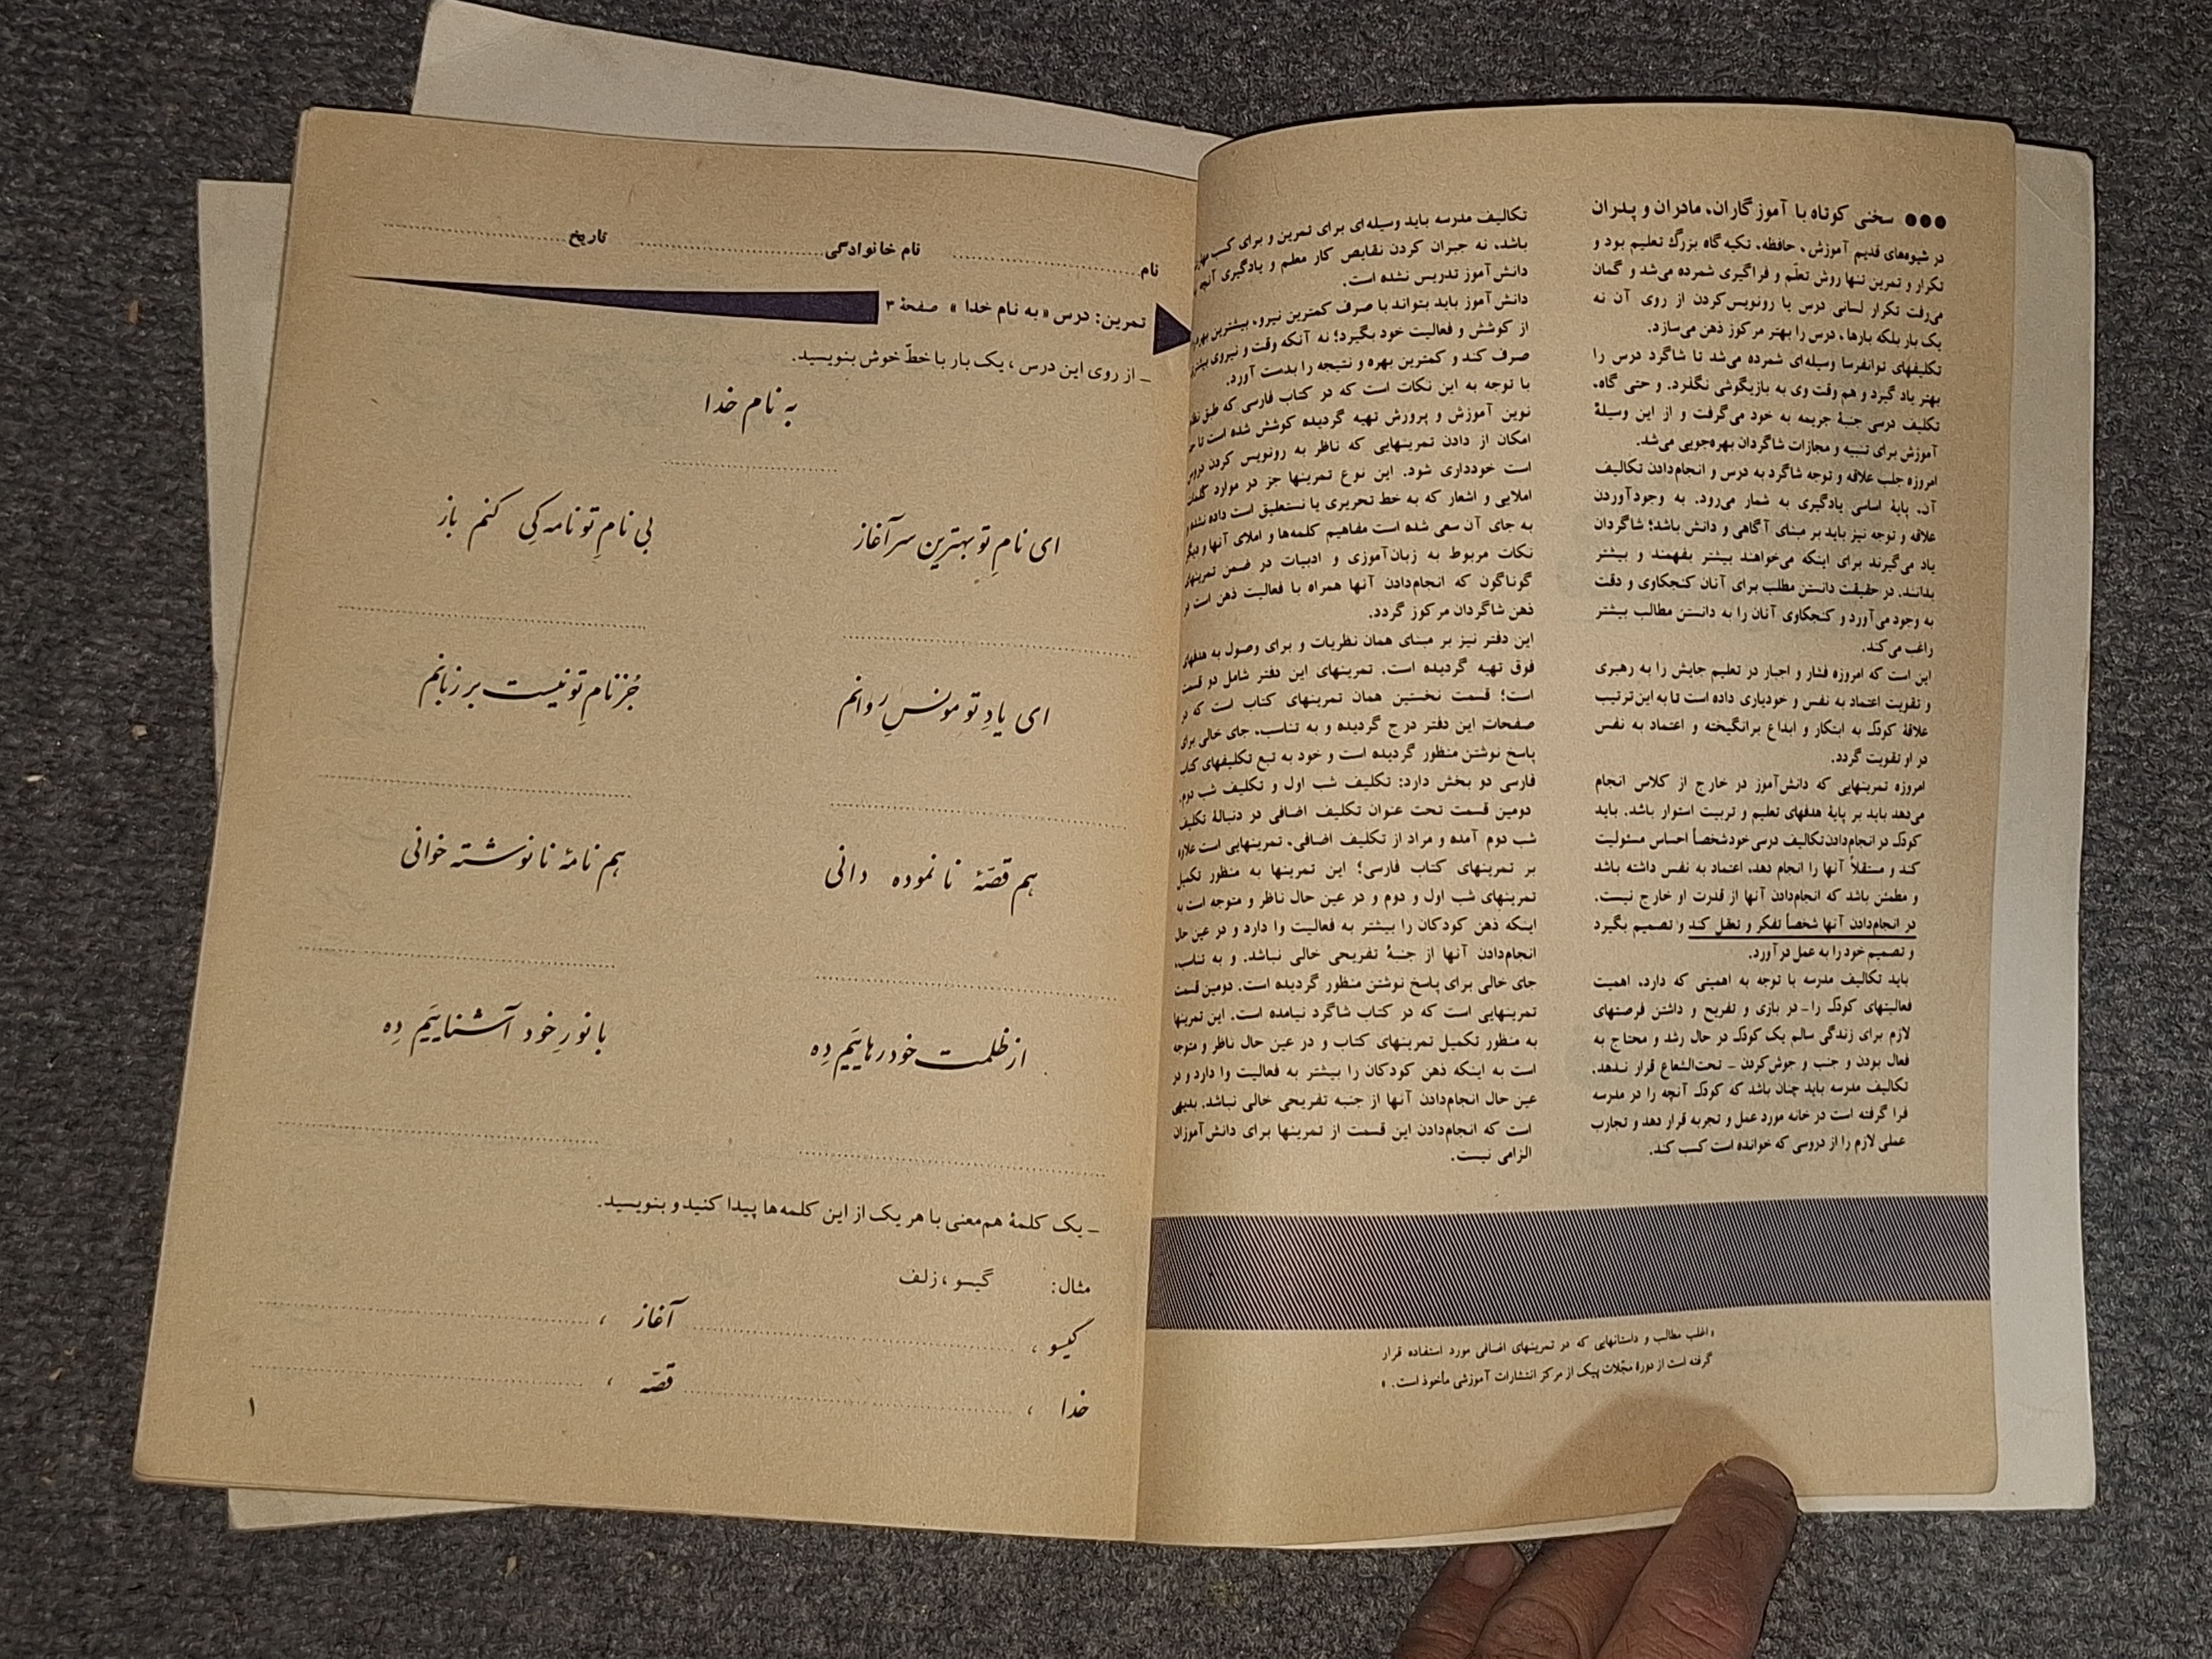 ●●● سخنی کوتاه با آموزگاران، مادران و پدران
در شیوه‌های قدیم آموزش، حافظه، تکیه گاه بزرگ تعلیم بود و
تکرار و تمرین تنها روش تعلّم و فراگیری شمرده می‌شد و گمان
می‌رفت تکرار لسانی درس یا رونویس‌کردن از روی آن نه
یک بار بلکه بارها، درس را بهتر مرکوز ذهن می‌سازد.
تکلیفهای توانفرسا وسیله‌ای شمرده می‌شد تا شاگرد درس را
بهتر یاد گیرد و هم وقت وی به بازیگوشی نگذرد. و حتی گاه،
تکلیف درسی جنبهٔ جریمه به خود می‌گرفت و از این وسیلهٔ
آموزش برای تنبیه و مجازات شاگردان بهره‌جویی می‌شد.
امروزه جلب علاقه و توجه شاگرد به درس و انجام‌دادن تکالیف
آن، پایهٔ اساسی یادگیری به شمار می‌رود. به وجودآوردن
علاقه و توجه نیز باید بر مبنای آگاهی و دانش باشد؛ شاگردان
یاد می‌گیرند برای اینکه می‌خواهند بیشتر بفهمند و بیشتر
بدانند. در حقیقت دانستن مطلب برای آنان کنجکاوی و دقت
به وجود می‌آورد و کنجکاوی آنان را به دانستن مطالب بیشتر
راغب می‌کند.
این است که امروزه فشار و اجبار در تعلیم جایش را به رهبری
و تقویت اعتماد به نفس و خودیاری داده است تا به این‌ترتیب
علاقهٔ کودک به ابتکار و ابداع برانگیخته و اعتماد به نفس
در او تقویت گردد.
امروزه تمرینهایی که دانش‌آموز در خارج از کلاس انجام
می‌دهد باید بر پایهٔ هدفهای تعلیم و تربیت استوار باشد. باید
کودک در انجام‌دادن تکالیف درسی خود شخصاً احساس مسئولیت
کند و مستقلاً آنها را انجام دهد، اعتماد به نفس داشته باشد
و مطمئن باشد که انجام‌دادن آنها از قدرت او خارج نیست.
در انجام‌دادن آنها شخصاً تفکر و تعقل کند و تصمیم بگیرد
و تصمیم خود را به عمل درآورد.
باید تکالیف مدرسه با توجه به اهمیتی که دارد، اهمیت
فعالیتهای کودک را - در بازی و تفریح و داشتن فرصتهای
لازم برای زندگی سالم یک کودک در حال رشد و محتاج به
فعال بودن و جنب و جوش‌کردن - تحت‌الشعاع قرار ندهد.
تکالیف مدرسه باید چنان باشد که کودک آنچه را در مدرسه
فرا گرفته است در خانه مورد عمل و تجربه قرار دهد و تجارب
عملی لازم را از دروسی که خوانده است کسب کند.
تکالیف مدرسه باید وسیله‌ای برای تمرین و برای کسب
باشد، نه جبران کردن نقایص کار معلم و یادگیری آنچه
دانش‌آموز تدریس نشده است.
دانش‌آموز باید بتواند با صرف کمترین نیرو، بیشترین
از کوشش و فعالیت خود بگیرد؛ نه آنکه وقت و نیروی
صرف کند و کمترین بهره و نتیجه را بدست آورد.
با توجه به این نکات است که در کتاب فارسی که طبق
نوین آموزش و پرورش تهیه گردیده کوشش شده است تا
امکان از دادن تمرینهایی که ناظر به رونویس کردن
است خودداری شود. این نوع تمرینها جز در موارد
املایی و اشعار که به خط تحریری یا نستعلیق است داده نشده
به جای آن سعی شده است مفاهیم کلمه‌ها و املای آنها و دیگر
نکات مربوط به زبان‌آموزی و ادبیات در ضمن تمرینهای
گوناگون که انجام‌دادن آنها همراه با فعالیت ذهن است در
ذهن شاگردان مرکوز گردد.
این دفتر نیز بر مبنای همان نظریات و برای وصول به هدفهای
فوق تهیه گردیده است. تمرینهای این دفتر شامل دو قسمت
است؛ قسمت نخستین همان تمرینهای کتاب است که در
صفحات این دفتر درج گردیده و به تناسب، جای خالی برای
پاسخ نوشتن منظور گردیده است و خود به تبع تکلیفهای کتاب
فارسی دو بخش دارد: تکلیف شب اول و تکلیف شب دوم.
دومین قسمت تحت عنوان تکلیف اضافی در دنبالهٔ تکلیف
شب دوم آمده و مراد از تکلیف اضافی، تمرینهایی است علاوه
بر تمرینهای کتاب فارسی؛ این تمرینها به منظور تکمیل
تمرینهای شب اول و دوم و در عین حال ناظر و متوجه است به
اینکه ذهن کودکان را بیشتر به فعالیت وا دارد و در عین حال
انجام‌دادن آنها از جنبهٔ تفریحی خالی نباشد. و به تناسب،
جای خالی برای پاسخ نوشتن منظور گردیده است. دومین قسمت
تمرینهایی است که در کتاب شاگرد نیامده است. این تمرینها
به منظور تکمیل تمرینهای کتاب و در عین حال ناظر و متوجه
است به اینکه ذهن کودکان را بیشتر به فعالیت وا دارد و در
عین حال انجام‌دادن آنها از جنبه تفریحی خالی نباشد. بدیهی
است که انجام‌دادن این قسمت از تمرینها برای دانش‌آموزان
الزامی نیست.
«اغلب مطالب و داستانهایی که در تمرینهای اضافی مورد استفاده قرار
گرفته است از دورهٔ مجلات پیک از مرکز انتشارات آموزشی مأخوذ است.»
نام نام خانوادگی تاریخ
تمرین: درس «به نام خدا» صفحهٔ ۳
_ از روی این درس، یک بار با خطّ خوش بنویسید.
به نام خدا
ای نامِ تو بهترین سرآغاز بی نامِ تو نامه کِی کنم باز
ای یادِ تو مونسِ روانم جُز نامِ تو نیست بر زبانم
هم قصّهٔ نانموده دانی هم نامهٔ نانوشته خوانی
از ظلمت خود رهاییَم دِه با نورِ خود آشناییَم دِه
_ یک کلمهٔ هم‌معنی با هر یک از این کلمه‌ها پیدا کنید و بنویسید.
مثال: گیسو، زلف
گیسو، آغاز،
خدا، قصّه،
۱